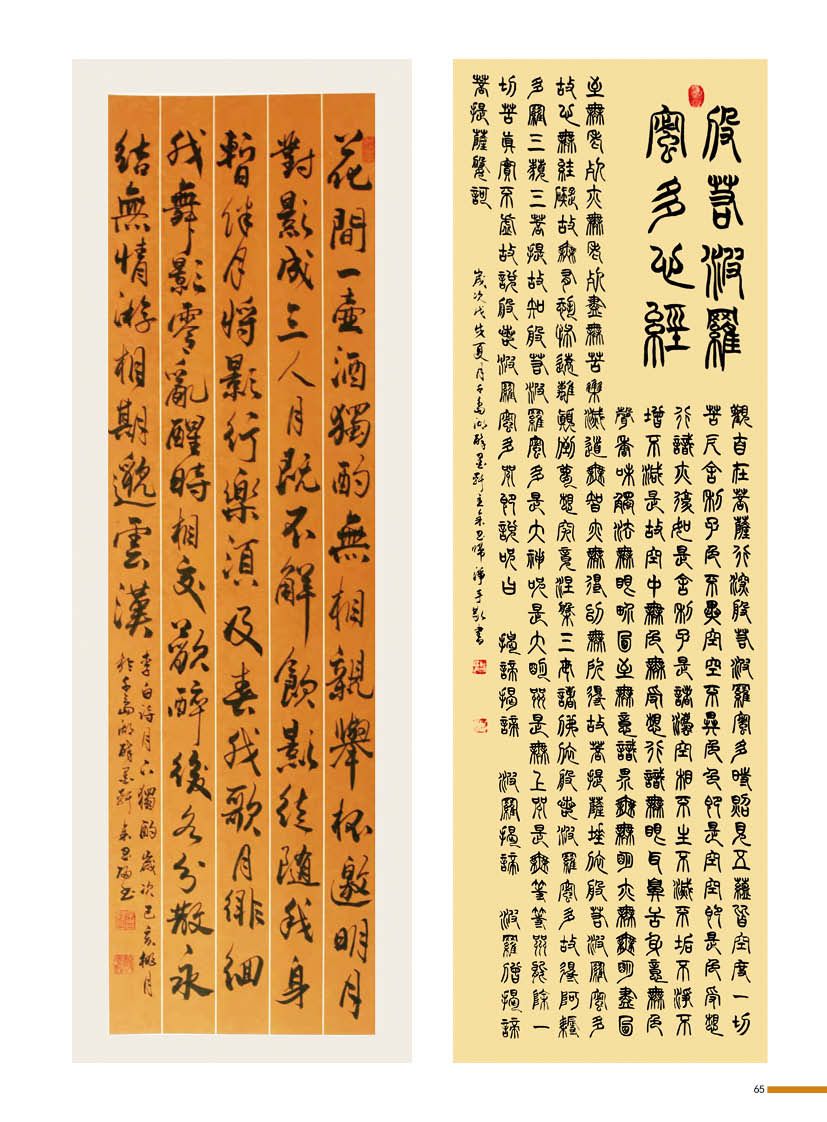 花間一壺酒獨酌無相親舉杯邀明月
對影成三人月既不解飲影徒隨我身
暫伴月將影行樂須及春我歌月徘徊
我舞影零亂醒時相交歡醉後各分散永
結無情游相期邈雲漢
李白詩月下獨酌歲次己亥桃月
於千島湖醉墨軒 書
般若波羅
蜜多心經
觀自在菩薩行深般若波羅蜜多時照見五蘊皆空度一切
苦厄舍利子色不異空空不異色色即是空空即是色受想
行識亦復如是舍利子是諸法空相不生不滅不垢不淨不
增不減是故空中無色無受想行識無眼耳鼻舌身意無色
聲香味觸法無眼界乃至無意識界無無明亦無無明盡乃
至無老死亦無老死盡無苦集滅道無智亦無得以無所得故菩提薩埵依般若波羅蜜多
故心無挂礙故無有恐怖遠離顛倒夢想究竟涅槃三世諸佛依般若波羅蜜多故得阿耨
多羅三藐三菩提故知般若波羅蜜多是大神咒是大明咒是無上咒是無等等咒能除一
切苦真實不虛故說般若波羅蜜多咒即說咒曰 揭諦揭諦 波羅揭諦 波羅僧揭諦
菩提薩婆訶
歲次戊戌夏月千島湖醉墨軒主 淨手敬書
65